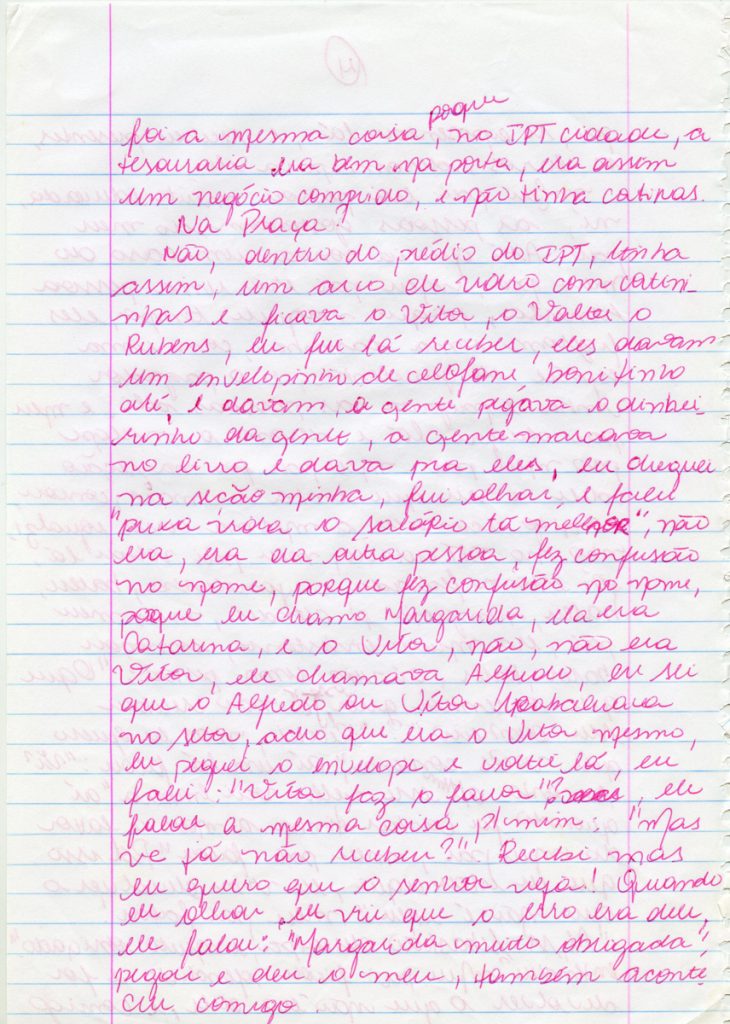 porque
foi a mesma coisa, no IPT cidade, a
tesouraria era bem na porta, era assim
um negócio comprido, e não tinha catinas.
Na Praça?
Não, dentro do prédio do IPT, tinha
assim, um arco de vidro com catini-
nhas e ficava o Vita, o Valter o
Rubens, eu fui lá receber, eles davam
um envelopinho de celofane bonitinho
até, e davam, a gente pegava o dinhei-
rinho da gente, a gente marcava
no livro e dava pra eles, eu cheguei
na seção minha, fui olhar, e falei
"puxa vida o salário tá melhor", não
era, era da outra pessoa, fez confusão
no nome, porque fez confusão no nome,
porque eu chamo Margarida, ela era
Catarina, e o Vita, não, não era
Vita, ele chamava Alfredo, eu sei
que o Alfredo ou Vita trabalhava
no setor, acho que era o Vita mesmo,
eu peguei o envelope e voltei lá, eu
falei: "Vita faz o favor"?, ele
falou a mesma coisa p/ mim: "Mas
vc já não recebeu?" Recebi mas
eu quero que o senhor veja! Quando
ele olhou, ele viu que o erro era deu,
ele falou: "Margarida muito obrigada",
pegou e deu o meu, também aconte
ceu comigo.